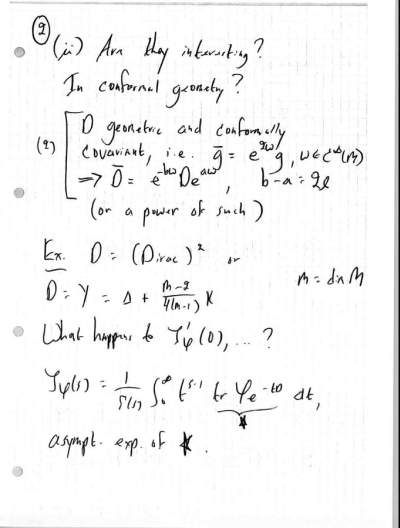 ②
(ii) Are they interesting?
In conformal geometry?
(2) [ D geometric and conformally
covariant, i.e. ḡ = e^{2ω} g, ω ∈ C^∞(M)
⟹ D̄ = e^{-bω} D e^{aω}, b-a = 2ℓ
(or a power of such)
Ex. D = (Dirac)² or
D = Y = Δ + \frac{m-2}{4(m-1)} K m = dim M
What happens to ζ'_φ(0), ...?
ζ_φ(s) = \frac{1}{Γ(s)} ∫_0^∞ t^{s-1} tr φe^{-tD} dt,
*
asympt. exp. of *.